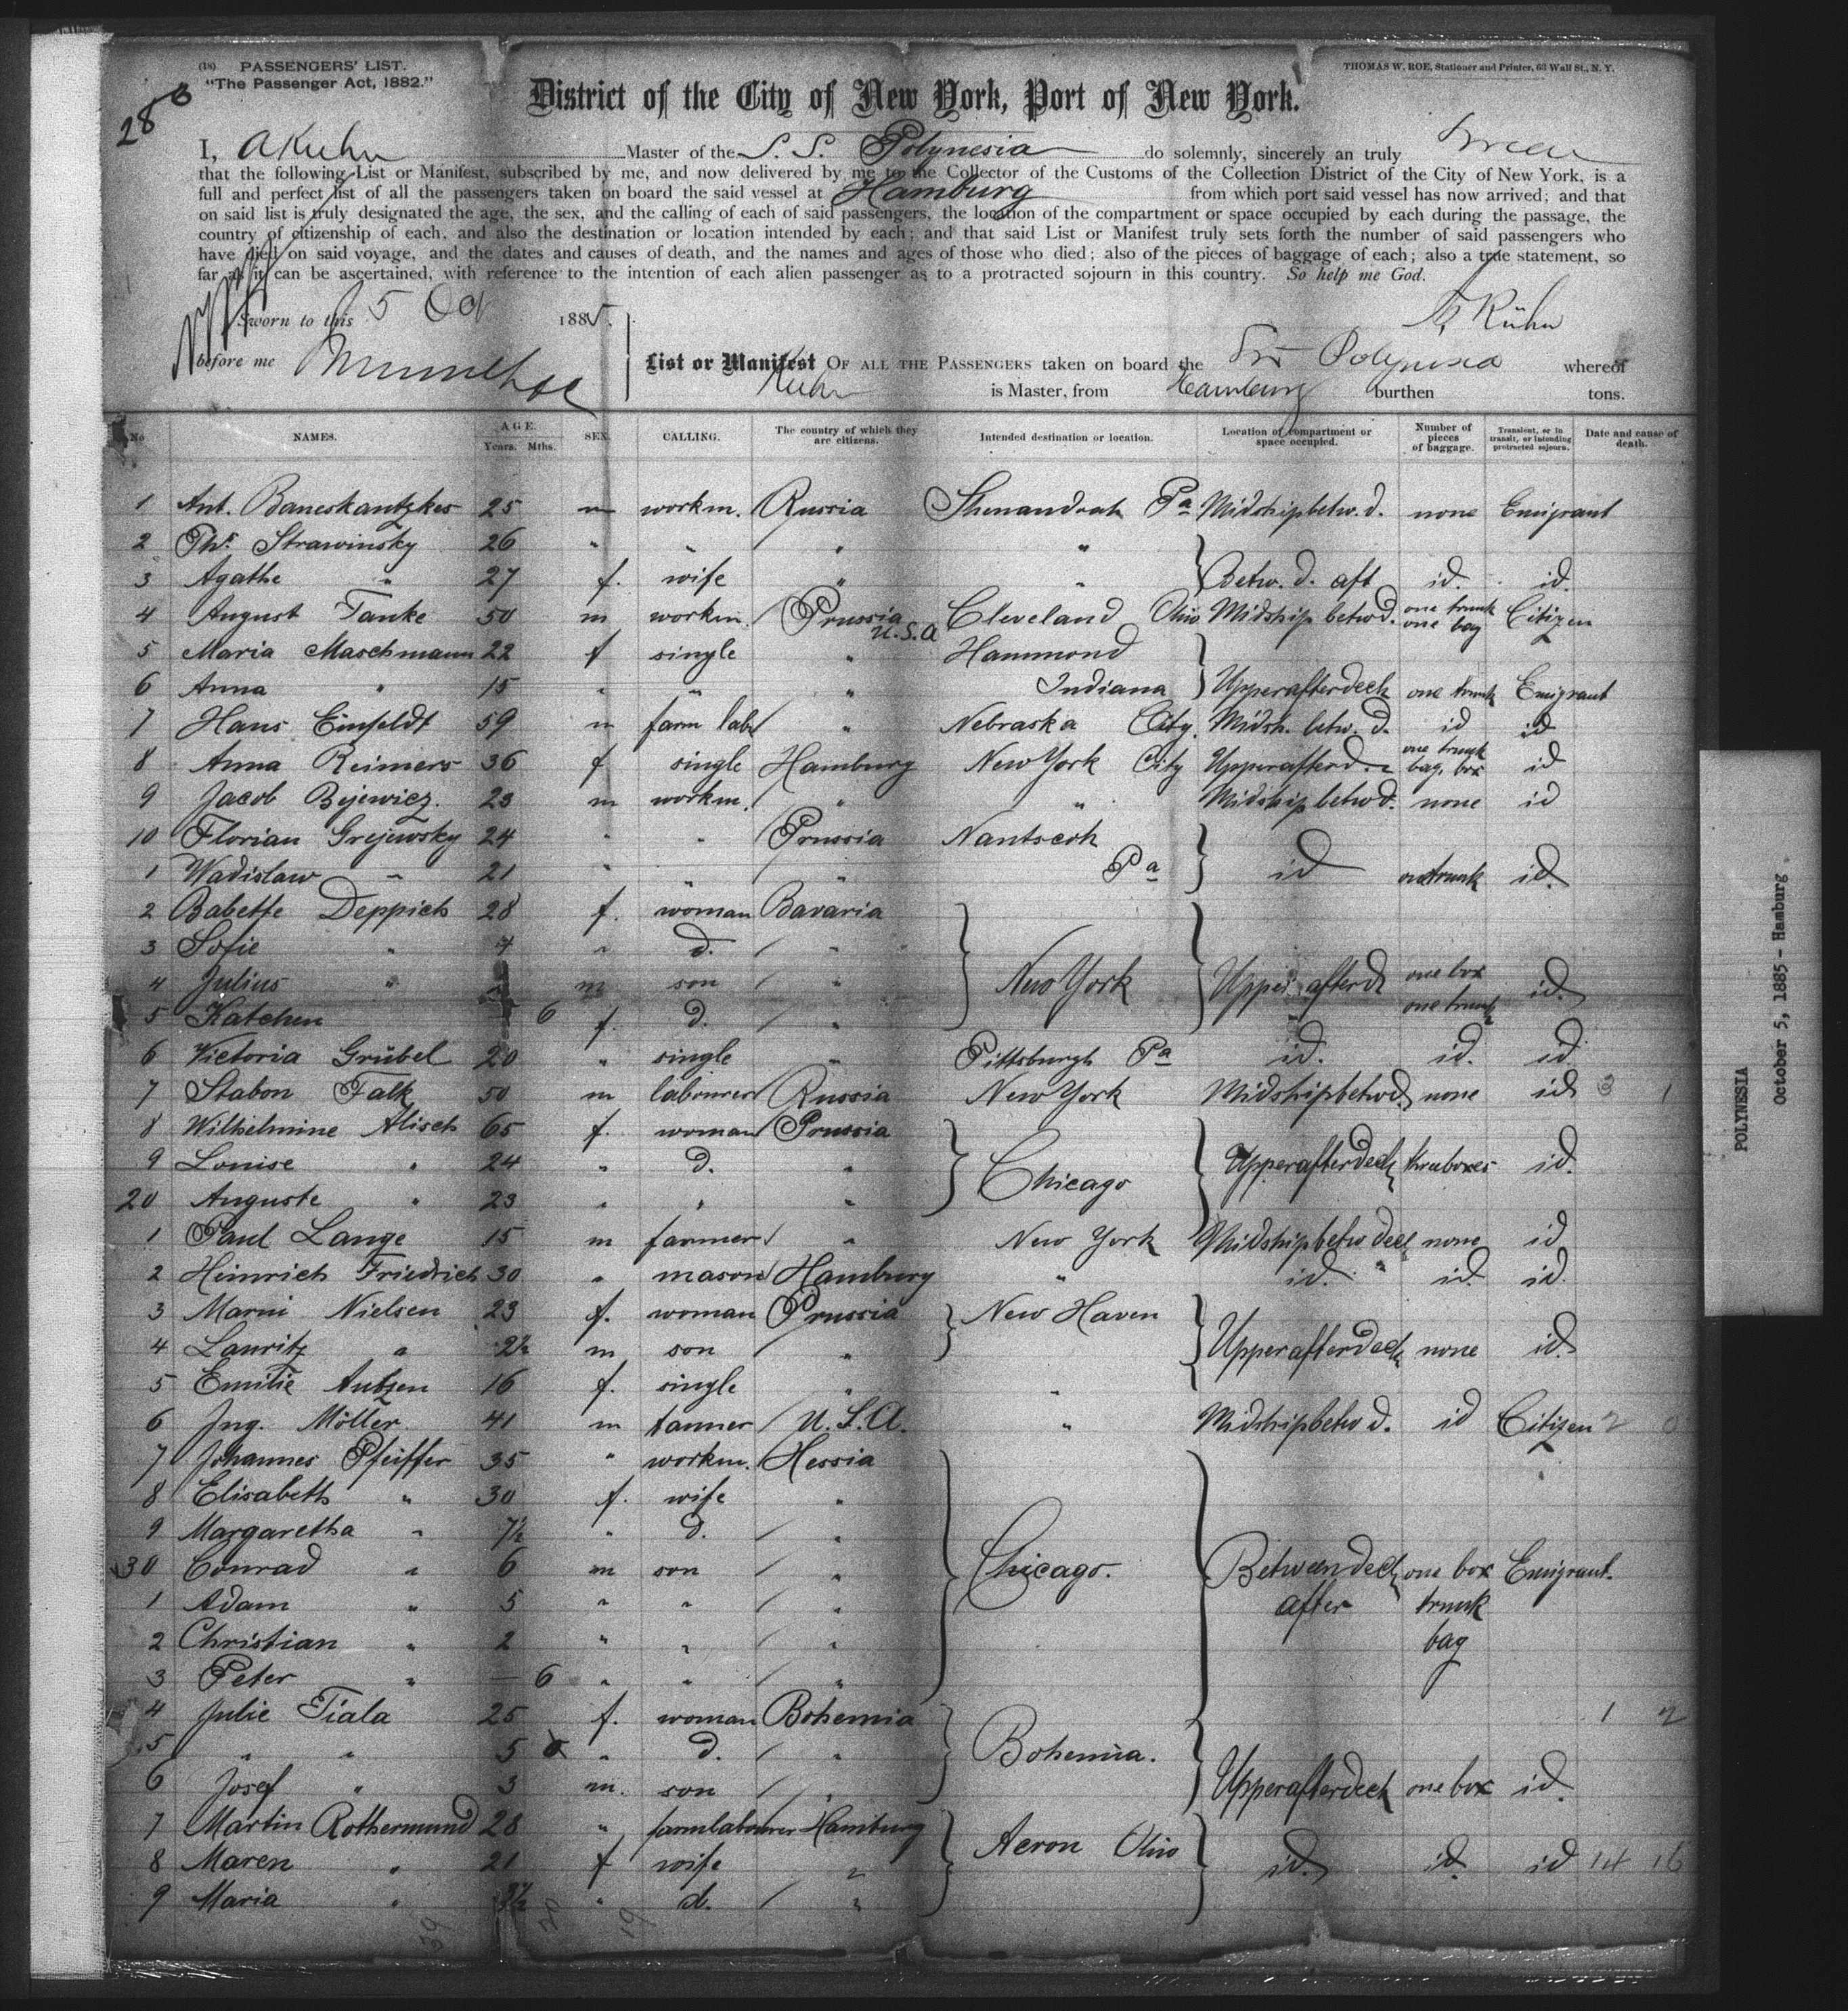 (18) PASSENGERS' LIST.
"The Passenger Act, 1882."
THOMAS W. ROE, Stationer and Printer, 63 Wall St., N. Y.
District of the City of New York, Port of New York.
I, A Kuhn Master of the S. S. Polynesia do solemnly, sincerely an truly
that the following List or Manifest, subscribed by me, and now delivered by me to the Collector of the Customs of the Collection District of the City of New York, is a
full and perfect list of all the passengers taken on board the said vessel at Hamburg from which port said vessel has now arrived; and that
on said list is truly designated the age, the sex, and the calling of each of said passengers, the location of the compartment or space occupied by each during the passage, the
country of citizenship of each, and also the destination or location intended by each; and that said List or Manifest truly sets forth the number of said passengers who
have died on said voyage, and the dates and causes of death, and the names and ages of those who died; also of the pieces of baggage of each; also a true statement, so
far as it can be ascertained, with reference to the intention of each alien passenger as to a protracted sojourn in this country. So help me God.
Sworn to this 5 Oct 1885. A. Kühn
before me
List or Manifest OF ALL THE PASSENGERS taken on board the Str Polynesia whereof
Kuhn is Master, from Hamburg burthen tons.
No NAMES. AGE. Years. Mths. SEX. CALLING. The country of which they are citizens. Intended destination or location. Location of compartment or space occupied. Number of pieces of baggage. Transient, or in transit, or intending protracted sojourn. Date and cause of death.
1 Ant. Baneskantzkes 25 m workm. Russia Shenandoah Pa Midshipbetw. d. none Emigrant
2 Ths Strawinsky 26 " " " "
3 Agathe " 27 f. wife " " Betw. d. aft id. id.
4 August Tanke 50 m workm. Prussia U.S.A Cleveland Ohio Midship betwd. one trunk one bag Citizen
5 Maria Maschmann 22 f single " Hammond
6 Anna " 15 " " " Indiana Upperafterdeck one trunk Emigrant
7 Hans Einfeldt 59 m farm labr " Nebraska City. Midsh. betw. d. id id
8 Anna Reimers 36 f single Hamburg New York City Upperafterd. one trunk bag, box id
9 Jacob Bijewicz. 23 m workm. " " Midshipbetwd. none id
10 Florian Grejewsky 24 " " Prussia Nantscoh
1 Wadislaw " 21 " " " Pa id one trunk id.
2 Babette Deppich 28 f. woman Bavaria
3 Sofie " 7 " d. "
4 Julius " m son " New York Upper afterd one box id.
5 Katchen 6 f. d. " one trunk
6 Victoria Grübel 20 " single " Pittsburgh Pa id. id. id
7 Stabon Falk 50 m labourer Russia New York Midshipbetwd. none id 1
8 Wilhelmine Alisch 65 f. woman Prussia
9 Louise " 24 " d. " Chicago Upperafterdeck three boxes id.
20 Auguste " 23 " " "
1 Paul Lange 15 m farmer " New York Midshipbetw deck none id
2 Heinrich Friedrich 30 " mason Hamburg " id. " id. id.
3 Marni Nielsen 23 f. woman Prussia New Haven
4 Lauritz " 2½ m son " Upperafterdeck none id.
5 Emilie Autzen 16 f. single " "
6 Jng. Möller 41 m tanner U.S.A. " Midshipbetw d. id Citizen 2 0
7 Johannes Pfeiffer 35 " workm. Hessia
8 Elisabeth " 30 f. wife "
9 Margaretha " 7½ " d. "
30 Conrad " 6 m son " Chicago. Betweendeck one box Emigrant.
1 Adam " 5 " " " after trunk
2 Christian " 2 " " " bag
3 Peter " — 6 " " "
4 Julie Fiala 25 f. woman Bohemia 1 2
5 " " 5 " d. " Bohemia.
6 Josef " 3 m. son " Upperafterdeck one box id.
7 Martin Rothermund 28 " farmlabourer Hamburg
8 Maren " 21 f wife " Acron Ohio id. id. id 14 16
9 Maria " 3½ " d. "
39 20 19
POLYNESIA
October 5, 1885 - Hamburg